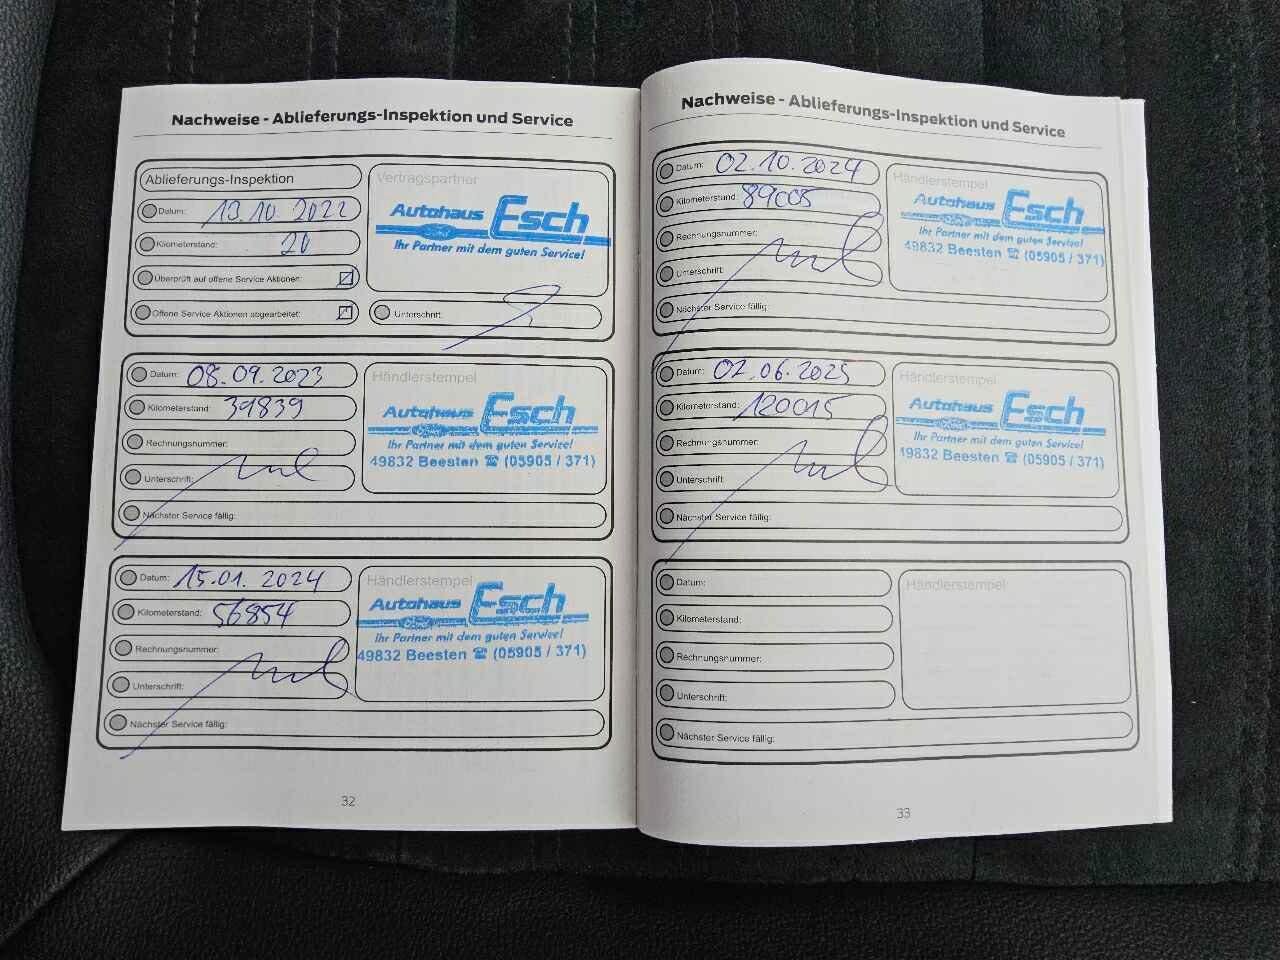 Nachweise - Ablieferungs-Inspektion und Service
Ablieferungs-Inspektion
Vertragspartner
Datum: 19.10.2022
Kilometerstand: 20
Überprüft auf offene Service Aktionen:
Offene Service Aktionen abgearbeitet:
Autohaus Esch
Ford
Ihr Partner mit dem guten Service!
Unterschrift:
Datum: 08.09.2023
Kilometerstand: 39839
Rechnungsnummer:
Unterschrift:
Nächster Service fällig:
Händlerstempel
Autohaus Esch
Ford
Ihr Partner mit dem guten Service!
49832 Beesten ☎ (05905 / 371)
Datum: 15.01.2024
Kilometerstand: 56854
Rechnungsnummer:
Unterschrift:
Nächster Service fällig:
Händlerstempel
Autohaus Esch
Ford
Ihr Partner mit dem guten Service!
49832 Beesten ☎ (05905 / 371)
32
Nachweise - Ablieferungs-Inspektion und Service
Datum: 02.10.2024
Kilometerstand: 89005
Rechnungsnummer:
Unterschrift:
Nächster Service fällig:
Händlerstempel
Autohaus Esch
Ford
Ihr Partner mit dem guten Service!
49832 Beesten ☎ (05905 / 371)
Datum: 02.06.2025
Kilometerstand: 120015
Rechnungsnummer:
Unterschrift:
Nächster Service fällig:
Händlerstempel
Autohaus Esch
Ford
Ihr Partner mit dem guten Service!
49832 Beesten ☎ (05905 / 371)
Datum:
Kilometerstand:
Rechnungsnummer:
Unterschrift:
Nächster Service fällig:
Händlerstempel
33